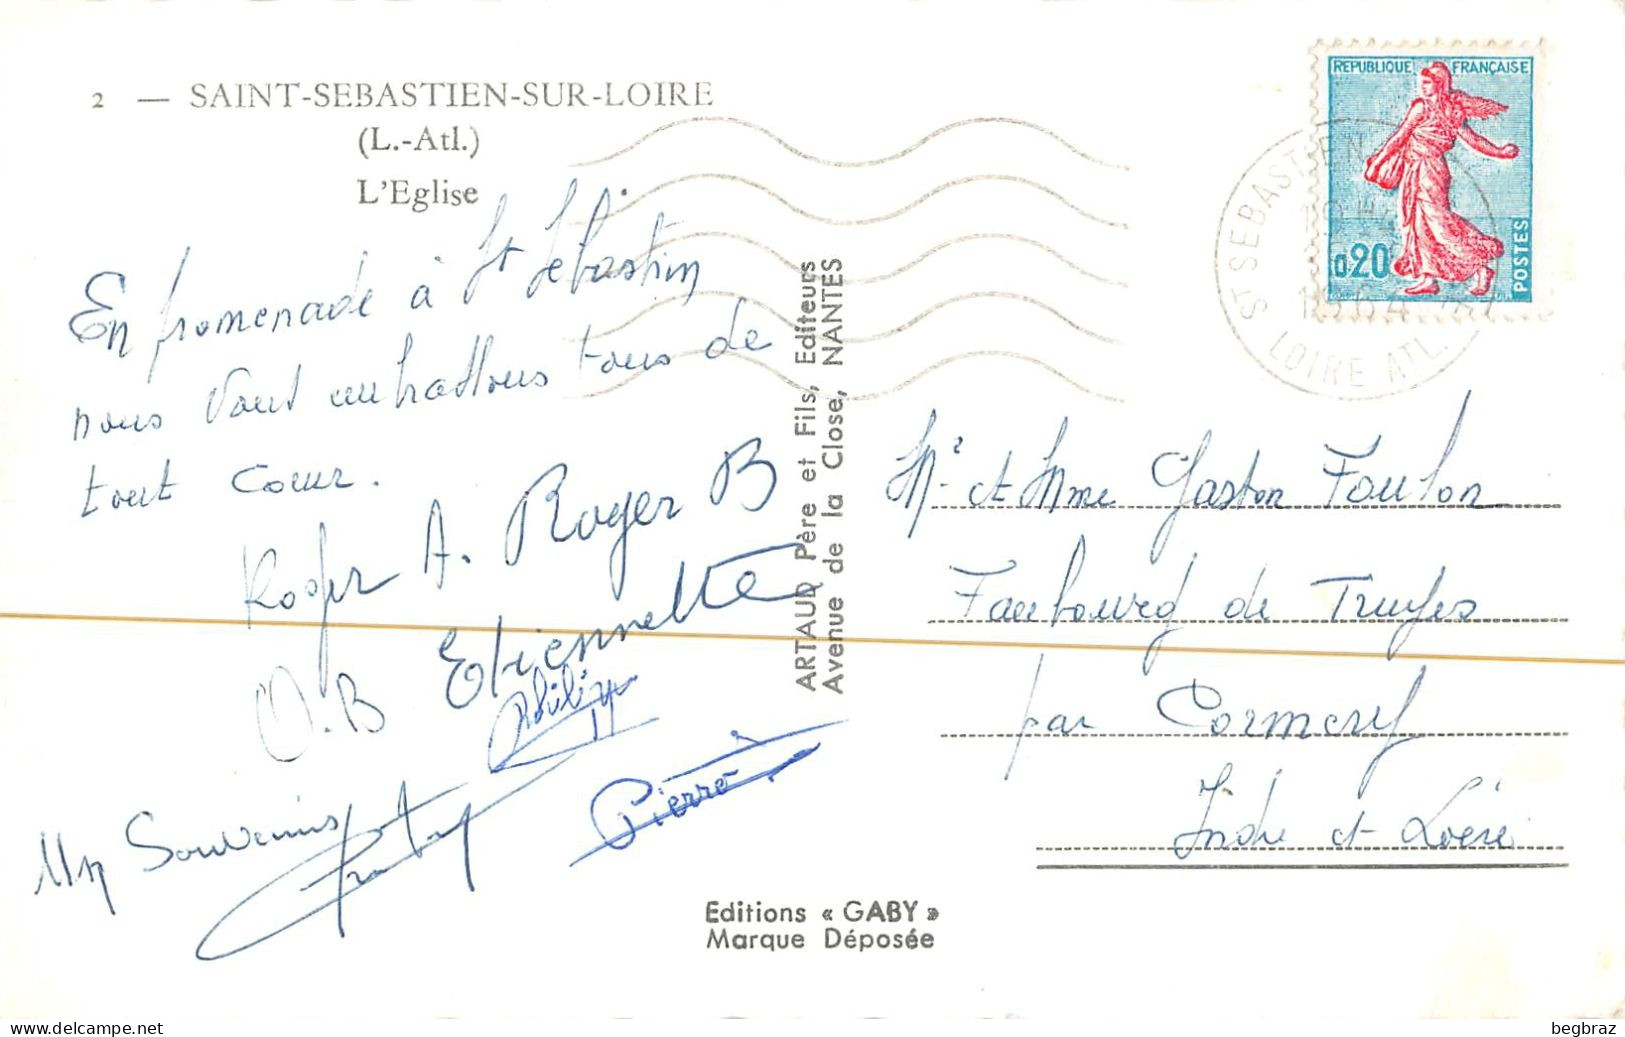 2 — SAINT-SEBASTIEN-SUR-LOIRE
(L.-Atl.)
L'Eglise
En promenade à St Sébastien
nous vous embrassons tous de
tout coeur.
Roger A. Roger B
O.B Etiennette
Philippe
Pierre
Un Souvenir
ARTAUD Père et Fils, Editeurs
Avenue de la Close, NANTES
REPUBLIQUE FRANÇAISE
0,20
POSTES
ST SEBASTIEN
LOIRE ATL.
Mr et Mme Gaston Foulon
Faubourg de Truyes
par Cormery
Indre et Loire
Editions « GABY »
Marque Déposée
www.delcampe.net
begbraz